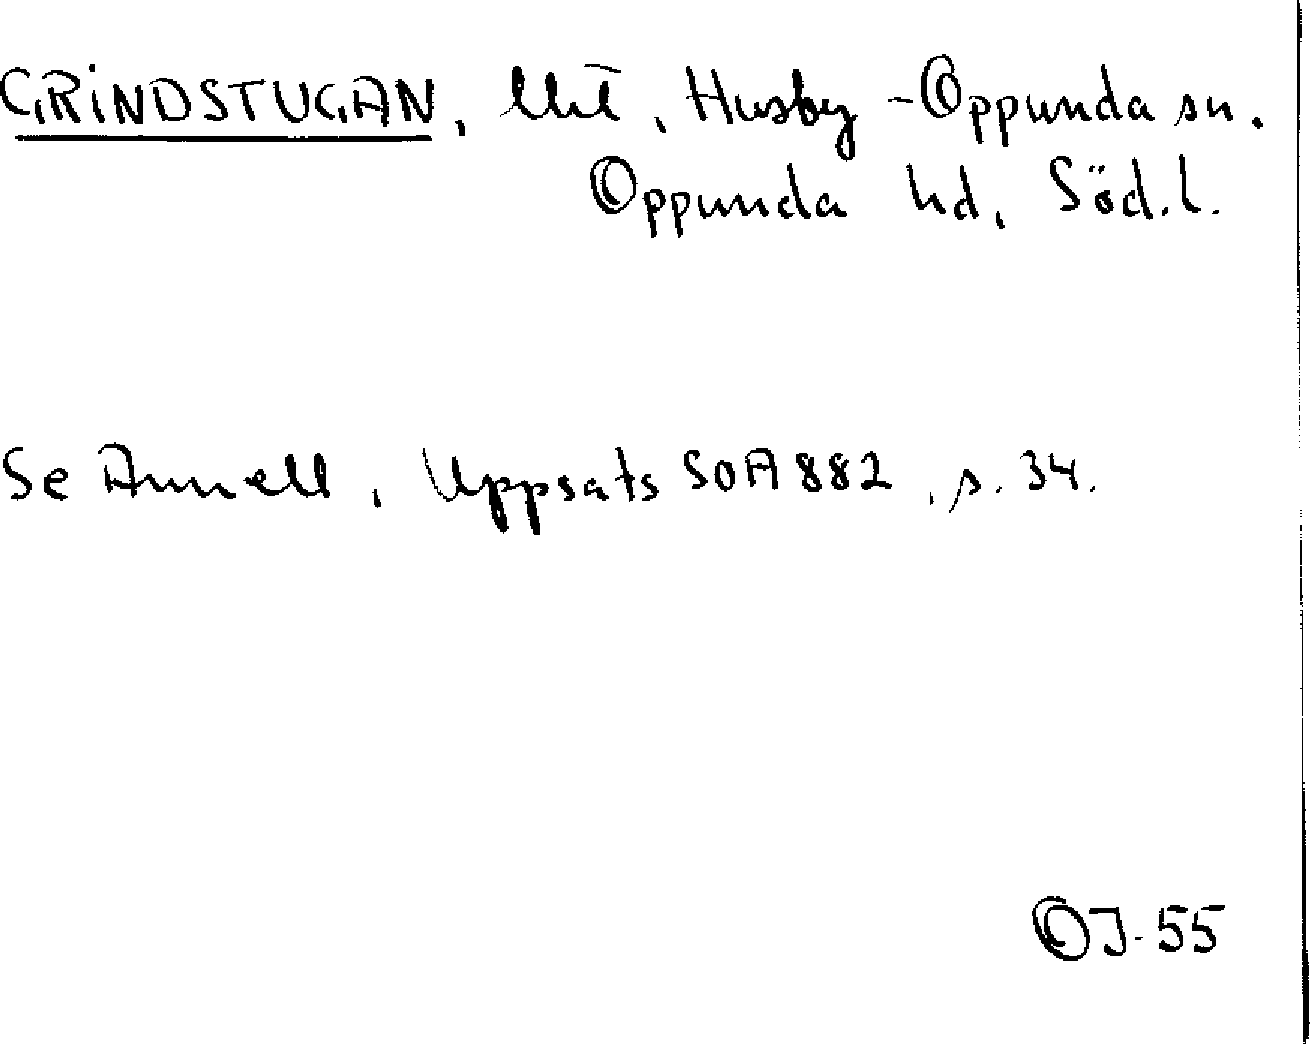 GRINDSTUGAN, lht, Husby-Oppunda sn.
Oppunda hd, Söd.l.
Se Annell, Uppsats SOA 882, s. 34.
OJ-55